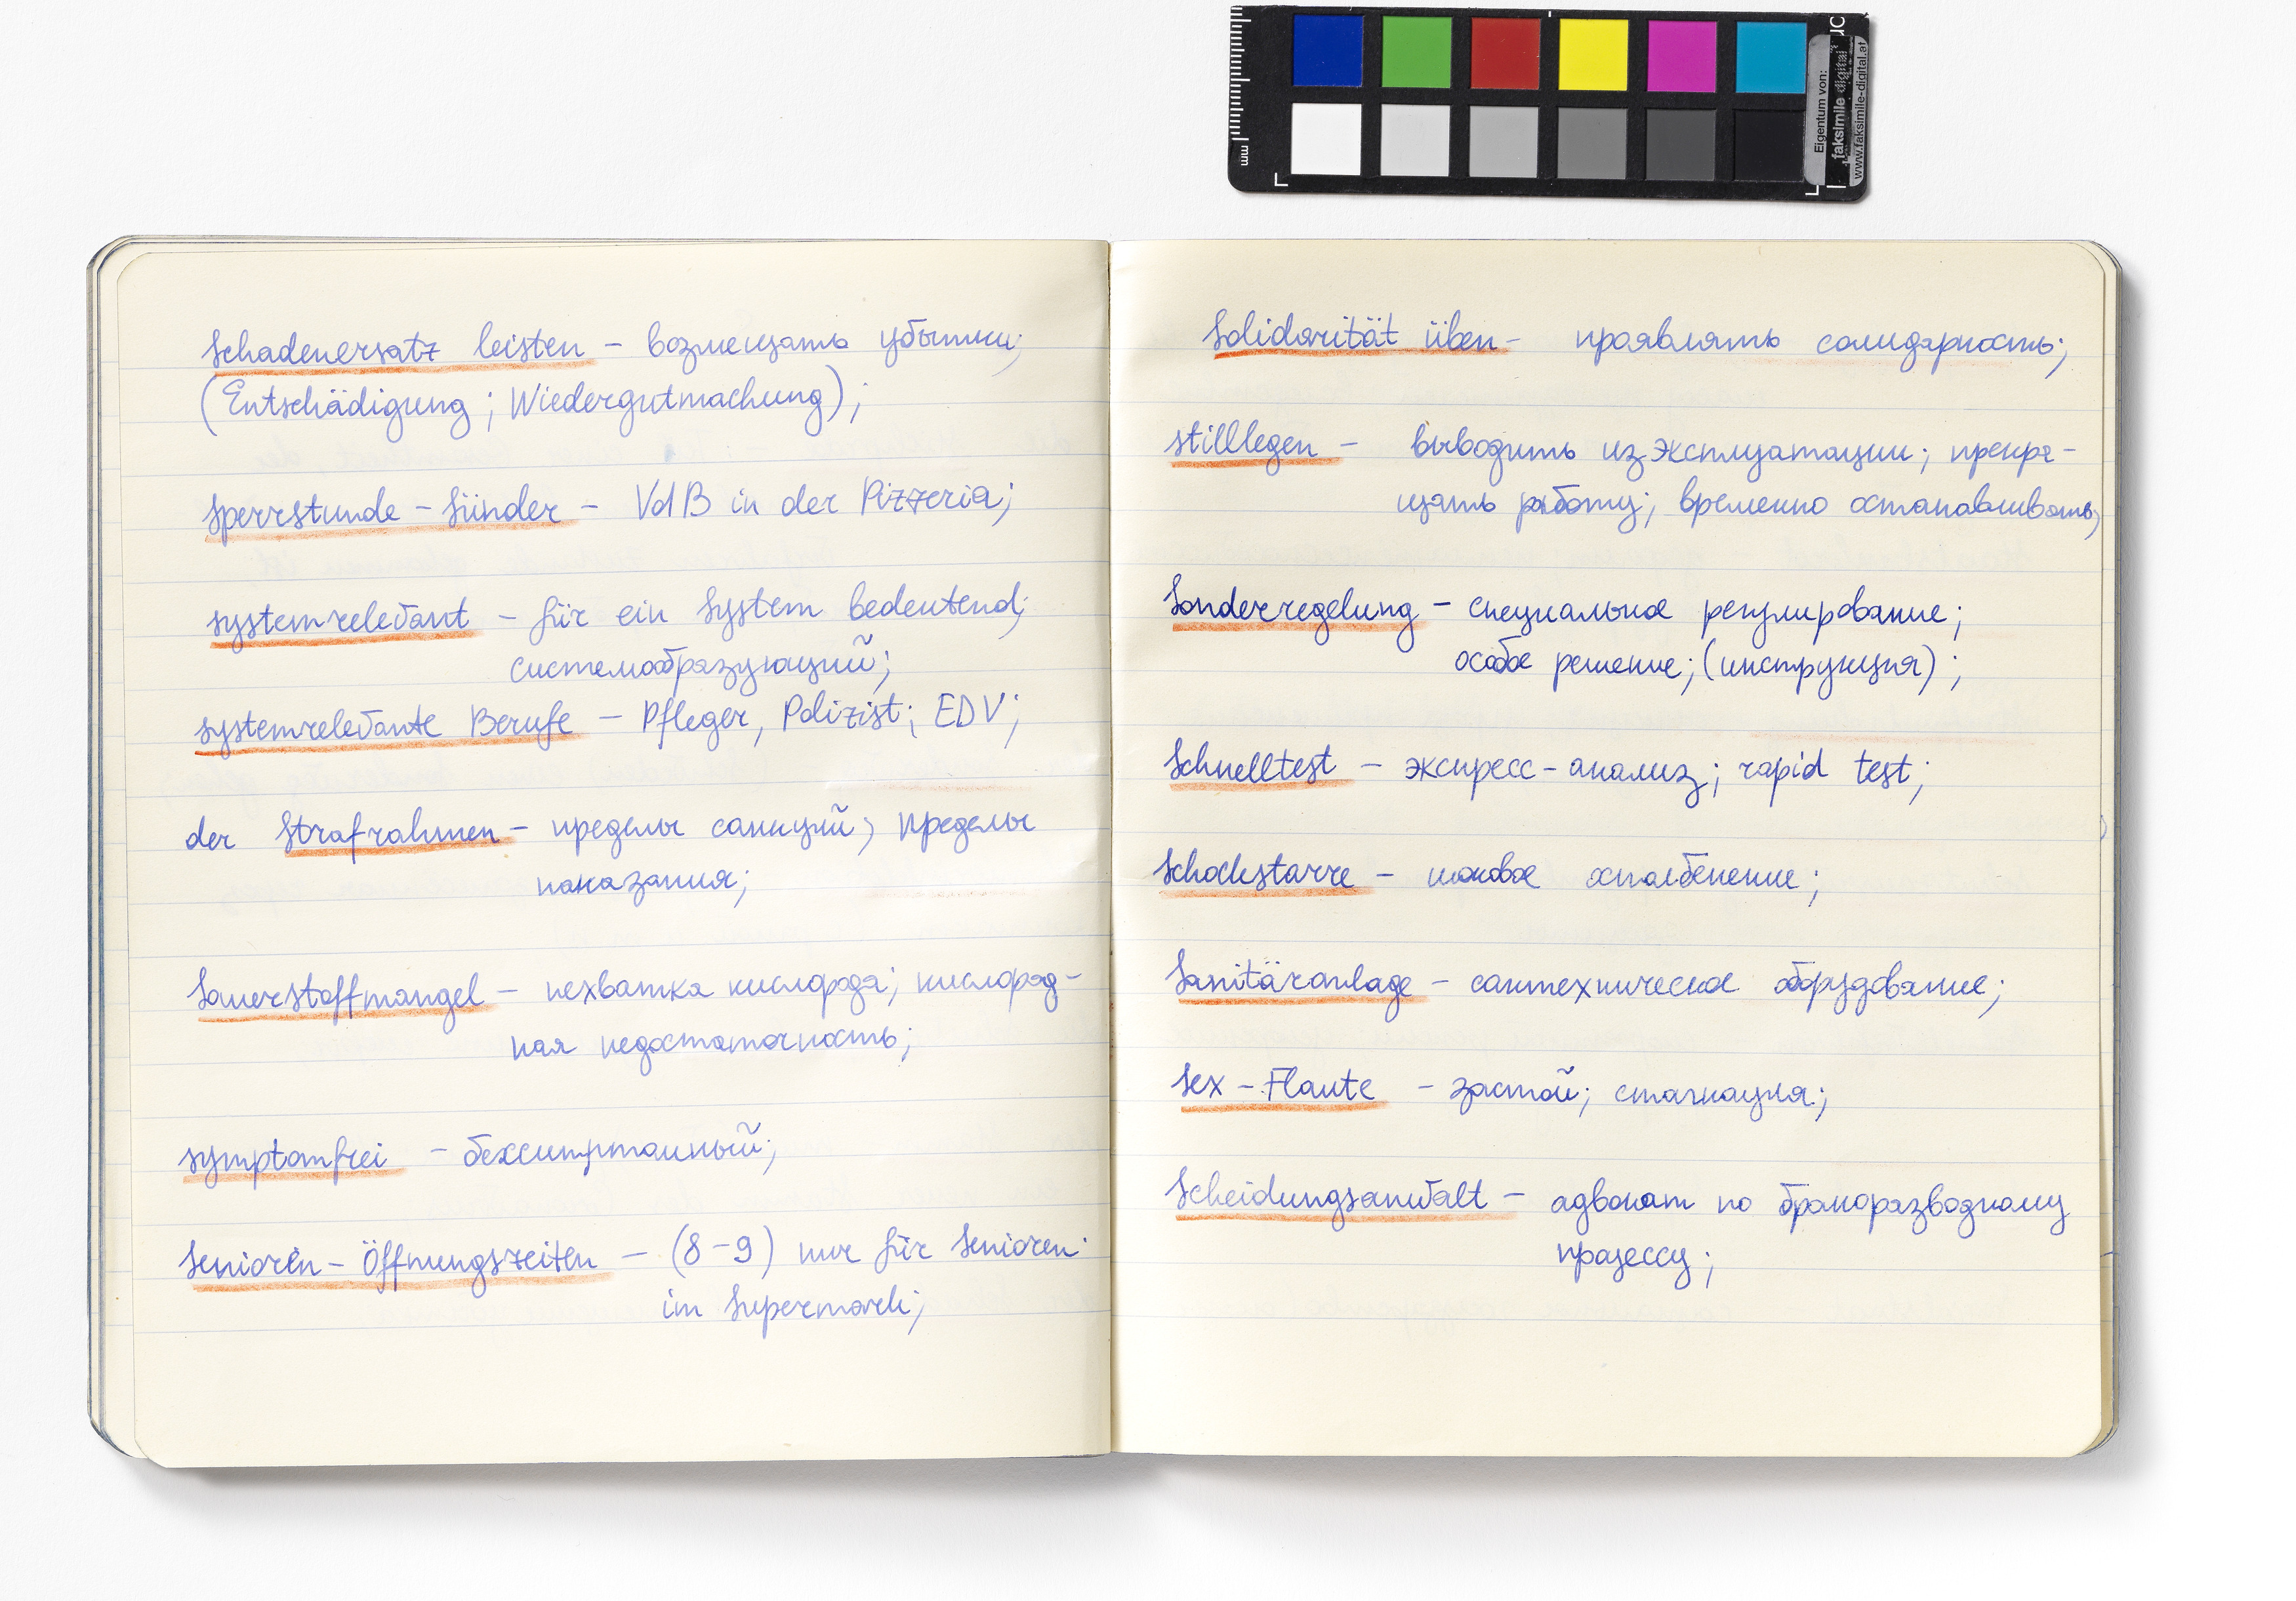 Schadenersatz leisten – возмещать убытки;
(Entschädigung; Wiedergutmachung);
Sperrstunde – Sünder – VdB in der Pizzeria;
systemrelevant – für ein System bedeutend;
системообразующий;
systemrelevante Berufe – Pfleger, Polizist; EDV;
der Strafrahmen – пределы санкций; пределы
наказания;
Sauerstoffmangel – нехватка кислорода; кислород-
ная недостаточность;
symptomfrei –
Senioren – Öffnungszeiten – (8–9) nur für Senioren
im Supermark;
Solidarität üben – проявлять солидарность;
stilllegen – выводить из эксплуатации; прекра-
щать работу; временно останавливать;
Sonderregelung – специальное регулирование;
особое решение; (инструкция);
Schnelltest – экспресс-анализ; rapid test;
Schockstarre – шоковое остолбенение;
Sanitäranlage – сантехническое оборудование;
Sex – Flaute – застой; стагнация;
Scheidungsanwalt – адвокат по бракоразводному
процессу;
mm
Eigentum von:
faksimile digital
www.faksimile-digital.at